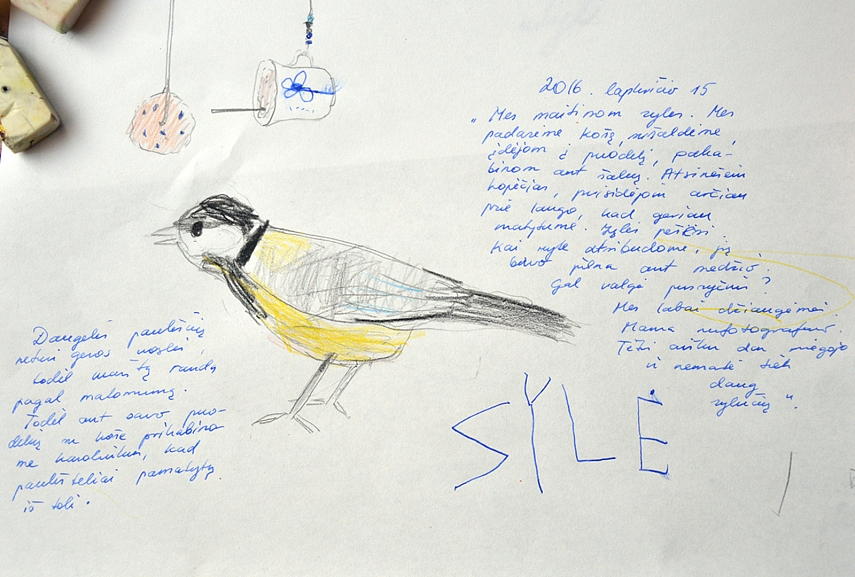 2016. lapkričio 15
„Mes maitinom zyles. Mes
padarėme košę, sušaldėme,
įdėjom į puodelį, paka-
binom ant šakų. Atsinešėm
kopėčias, prisidėjom arčiau
prie lango, kad geriau
matytume. Zylės
Kai ryte atsibudome, jų
buvo pilna ant medžio.
Gal valgė pusryčius?
Mes labai džiaugėmės.
Mama nufotografavo.
Tėtis aišku dar miegojo
ir nematė tiek
daug
zylučių".
Daugelis paukščių
neturi geros uoslės,
todėl maistą randa
pagal matomumą.
Todėl ant savo puo-
delių su koše prikabino-
me karoliukus, kad
paukšteliai pamatytų
iš toli.
SYLĖ